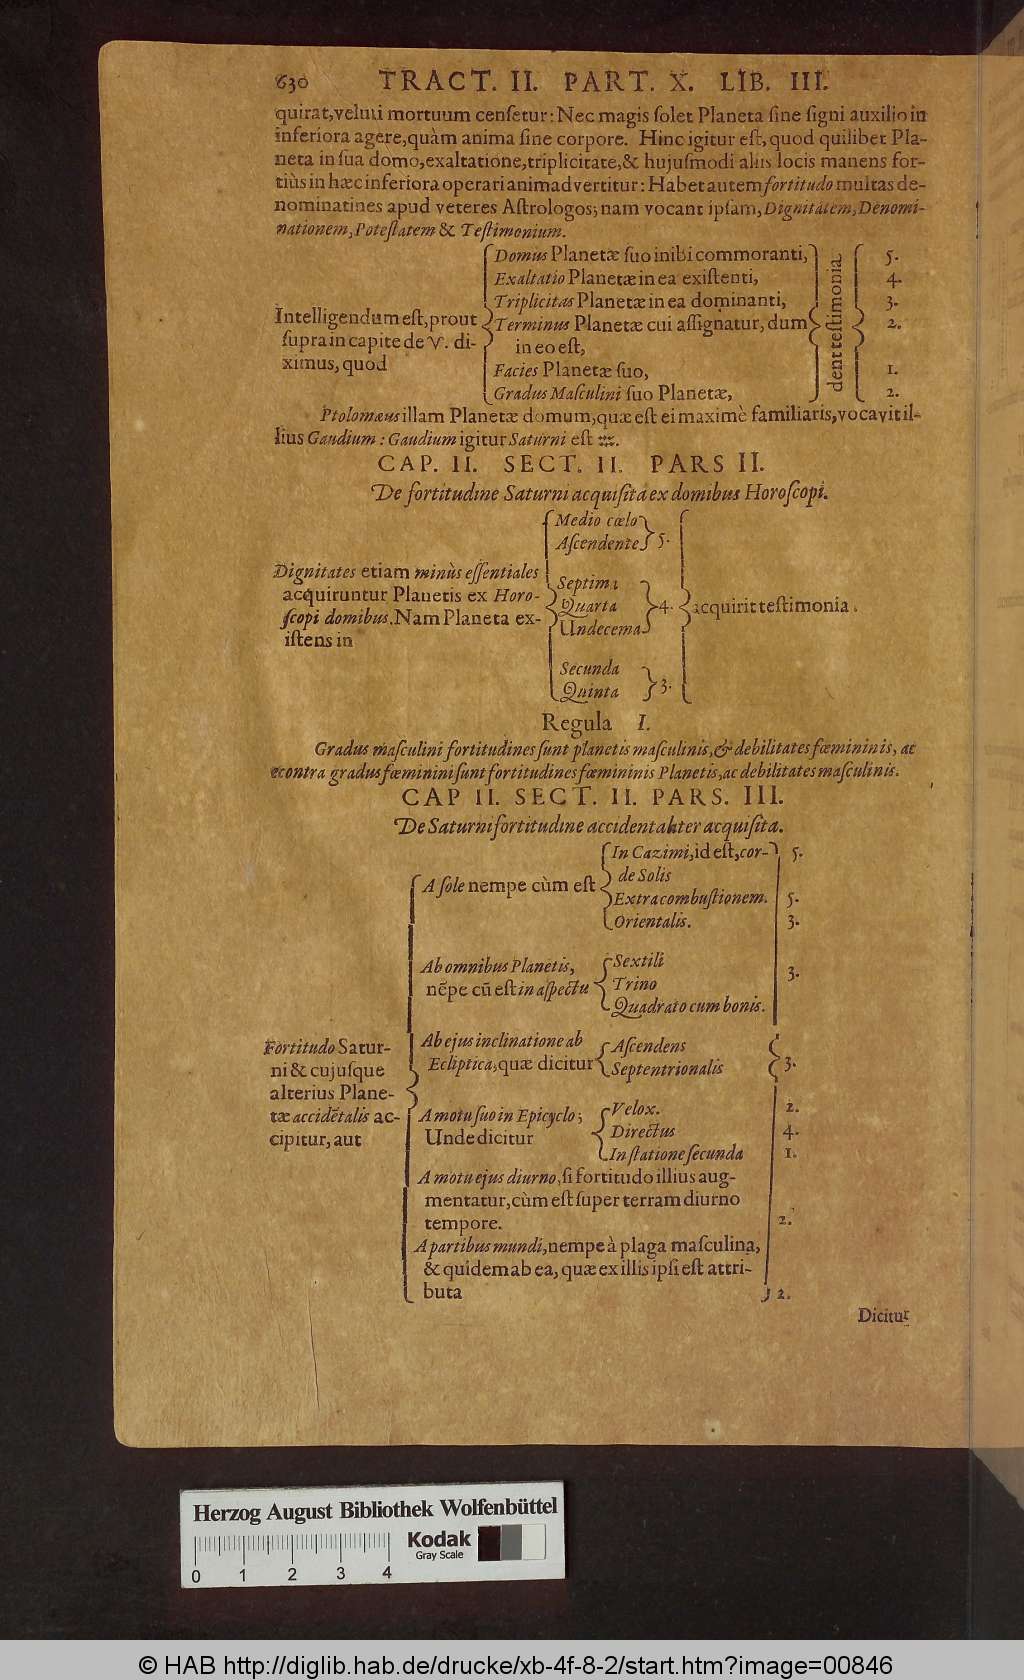 630 TRACT. II. PART. X. LIB. III.
quirat, veluti mortuum cenſetur: Nec magis ſolet Planeta ſine ſigni auxilio in
inferiora agere, quàm anima ſine corpore. Hinc igitur eſt, quod quilibet Pla-
neta in ſua domo, exaltatione, triplicitate, & hujuſmodi aliis locis manens for-
tiùs in hæc inferiora operari animadvertitur: Habet autem fortitudo multas de-
nominatines apud veteres Aſtrologos; nam vocant ipſam, Dignitatem, Denomi-
nationem, Poteſtatem & Teſtimonium.
Intelligendum eſt, prout
ſupra in capite de ♈. di-
ximus, quod
Domus Planetæ ſuo inibi commoranti, 5.
Exaltatio Planetæ in ea exiſtenti, 4.
Triplicitas Planetæ in ea dominanti, 3.
Terminus Planetæ cui aſſignatur, dum 2.
in eo eſt,
Facies Planetæ ſuo, 1.
Gradus Maſculini ſuo Planetæ, 2.
dent teſtimonia
Ptolomæus illam Planetæ domum, quæ eſt ei maximè familiaris, vocavit il-
lius Gaudium: Gaudium igitur Saturni eſt ♒.
CAP. II. SECT. II. PARS II.
De fortitudine Saturni acquiſita ex domibus Horoſcopi.
Dignitates etiam minùs eſſentiales
acquiruntur Planetis ex Horo-
ſcopi domibus. Nam Planeta ex-
iſtens in
Medio cœlo
Aſcendente 5.
Septima
Quarta 4.
Undecema
Secunda
Quinta 3.
acquirit teſtimonia.
Regula I.
Gradus maſculini fortitudines ſunt planetis maſculinis, & debilitates fœmininis, ac
econtra gradus fœminini ſunt fortitudines fœmininis Planetis, ac debilitates maſculinis.
CAP II. SECT. II. PARS. III.
De Saturni fortitudine accidentaliter acquiſita.
Fortitudo Satur-
ni & cujuſque
alterius Plane-
tæ accidẽtalis ac-
cipitur, aut
A ſole nempe cùm eſt
In Cazimi, id eſt, cor- 5.
de Solis
Extra combuſtionem. 5.
Orientalis. 3.
Ab omnibus Planetis,
nẽpe cũ eſt in aſpectu
Sextili
Trino 3.
Quadrato cum bonis.
Ab ejus inclinatione ab
Ecliptica, quæ dicitur
Aſcendens
Septentrionalis 3.
A motu ſuo in Epicyclo;
Unde dicitur
Velox. 2.
Directus 4.
In ſtatione ſecunda 1.
A motu ejus diurno, ſi fortitudo illius aug-
mentatur, cùm eſt ſuper terram diurno
tempore. 2.
A partibus mundi, nempe à plaga maſculina,
& quidem ab ea, quæ ex illis ipſi eſt attri-
buta 2.
Dicitur
Herzog August Bibliothek Wolfenbüttel
Kodak
Gray Scale
0 1 2 3 4
© HAB http://diglib.hab.de/drucke/xb-4f-8-2/start.htm?image=00846